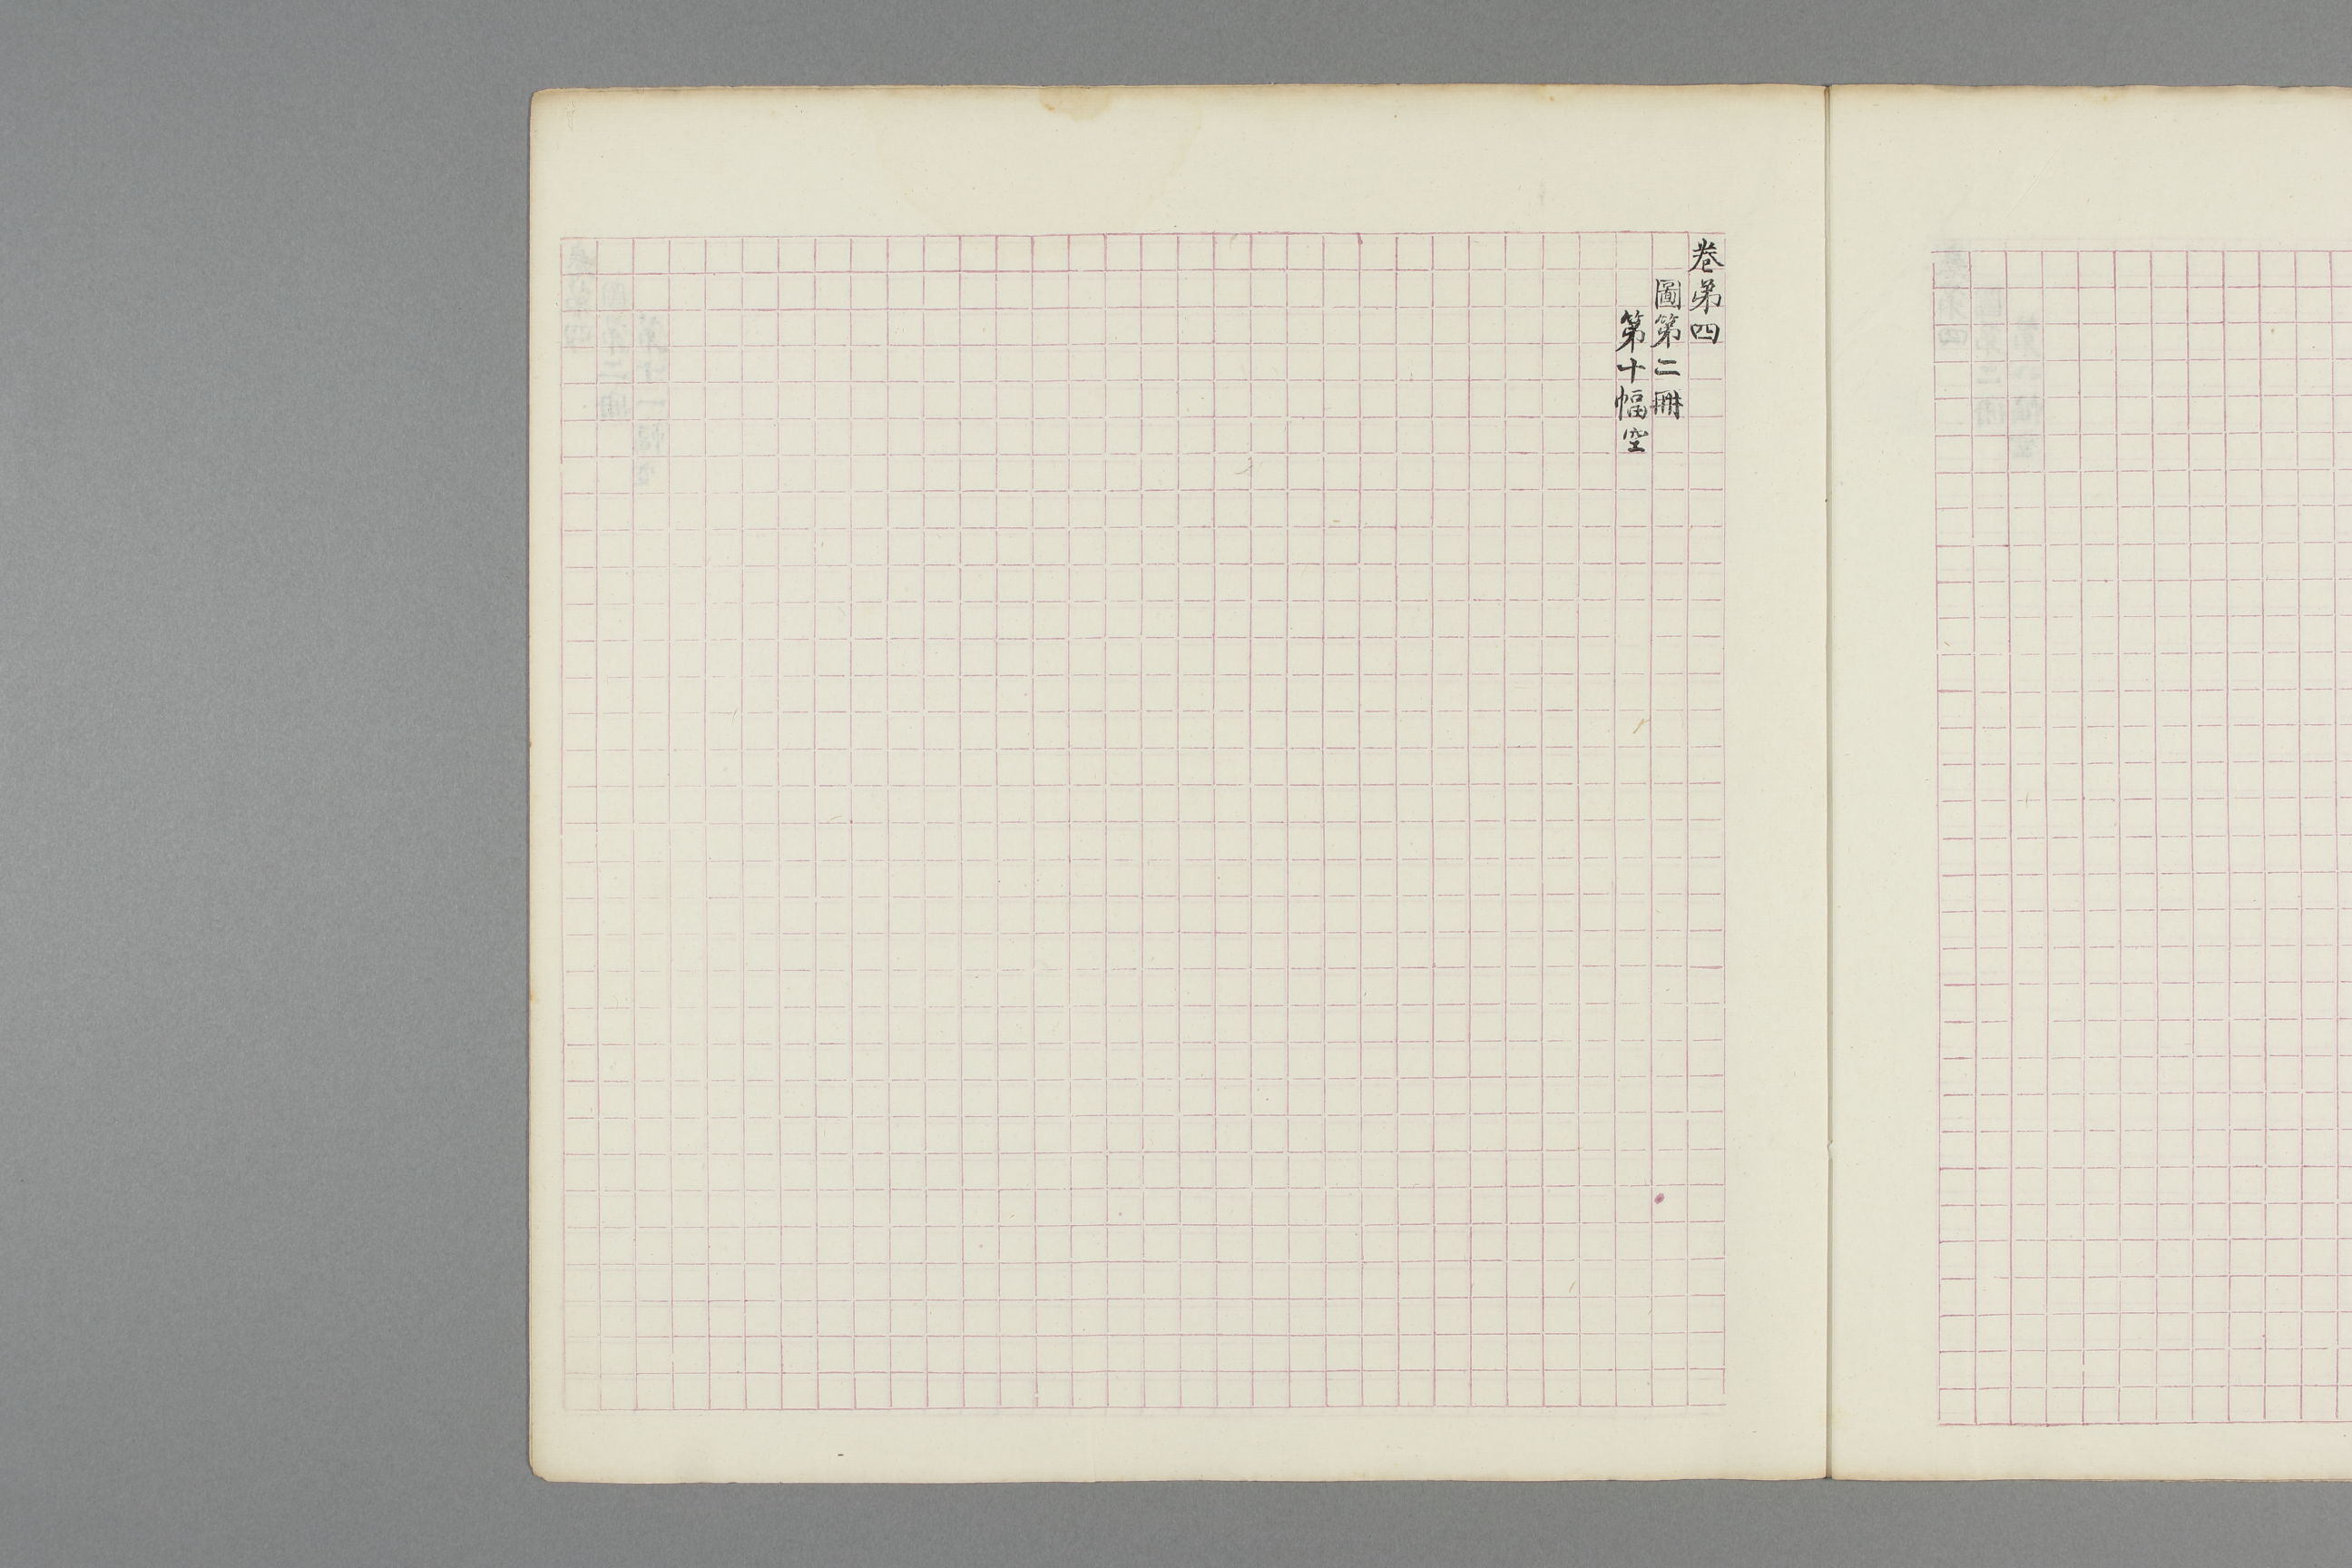 卷第四
圖第二冊
第十幅空